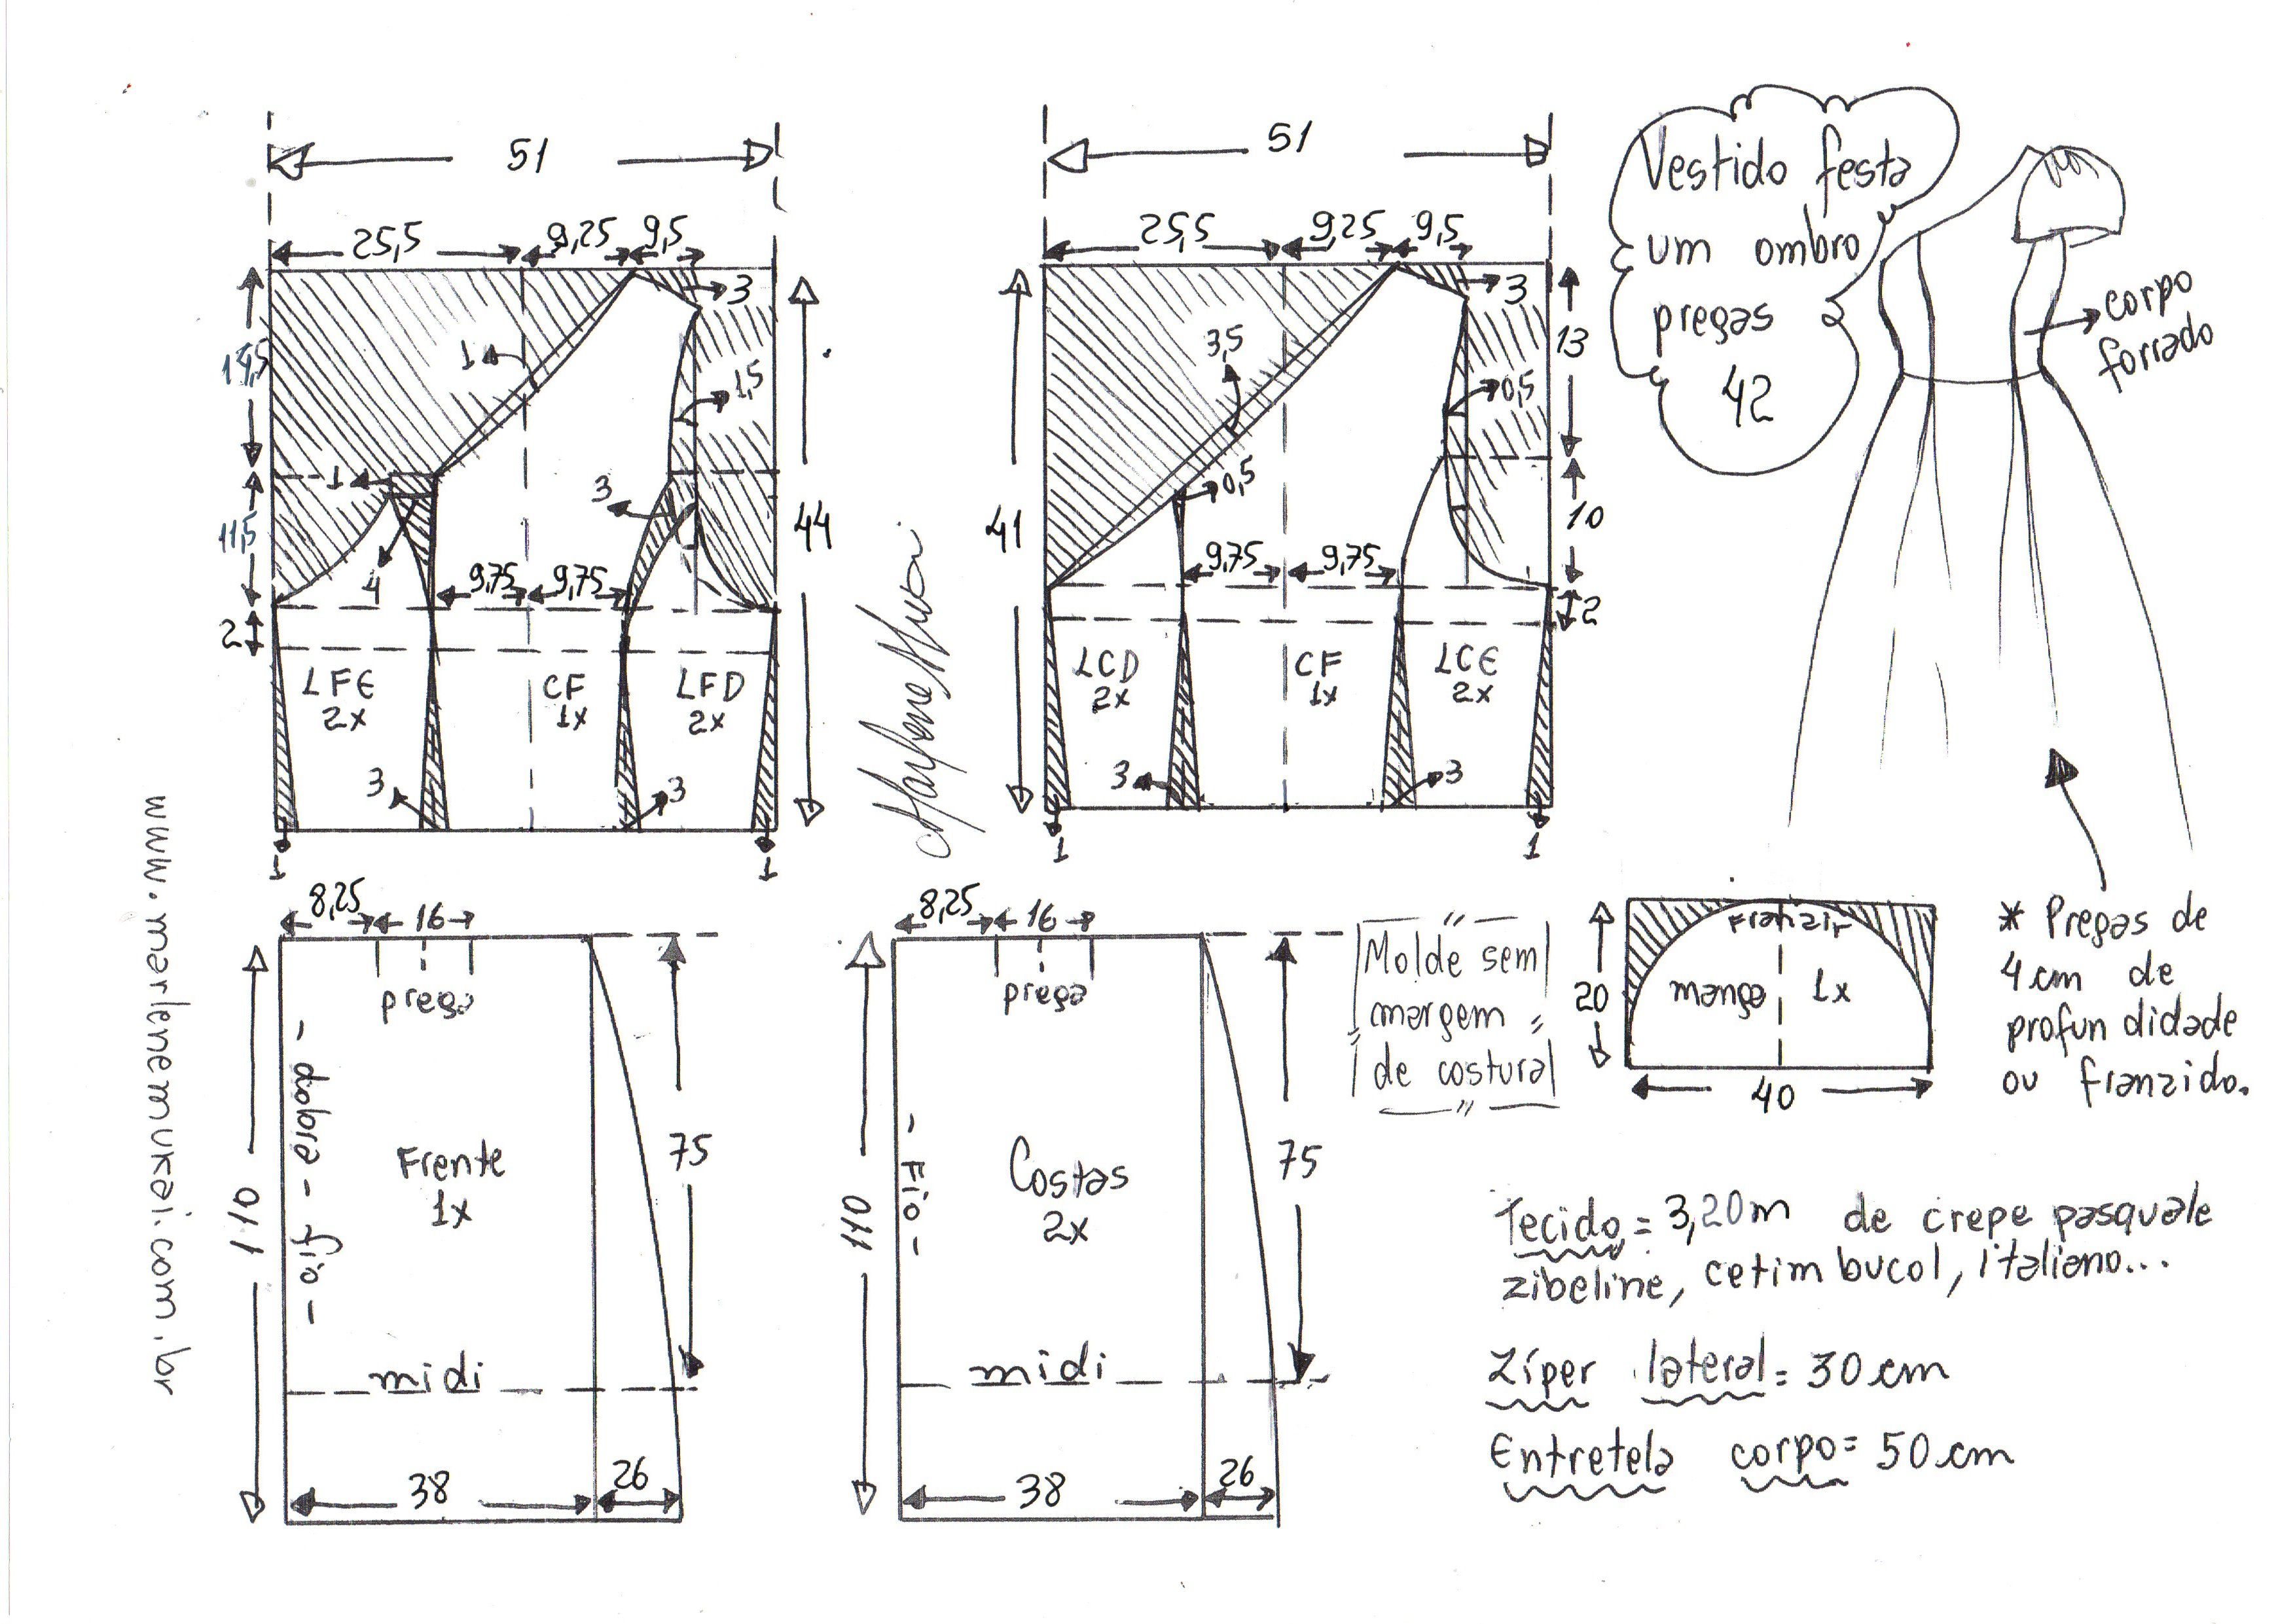 51
25,5 9,25 9,5
3
1
1,5
1
11,5
3
44
4
9,75 9,75
2
LFE
2x
CF
1x
LFD
2x
3
3
1
1
51
25,5 9,25 9,5
3
13
3,5
0,5
0,5
41
10
9,75 9,75
2
LCD
2x
CF
1x
LCE
2x
3
3
1
1
Vestido festa
um ombro
pregas
42
corpo
forrado
www.marlenemukai.com.br
8,25 16
prega
- dobra - fio -
110
Frente
1x
75
midi
38 26
8,25 16
prega
- Fio -
110
Costas
2x
75
midi
38 26
Molde sem
margem
de costura
Franzir
manga 1x
20
40
* Pregas de
4cm de
profundidade
ou franzido.
Tecido = 3,20m de crepe pasquale
zibeline, cetim bucol, italiano...
Zíper lateral = 30cm
Entretela corpo = 50cm